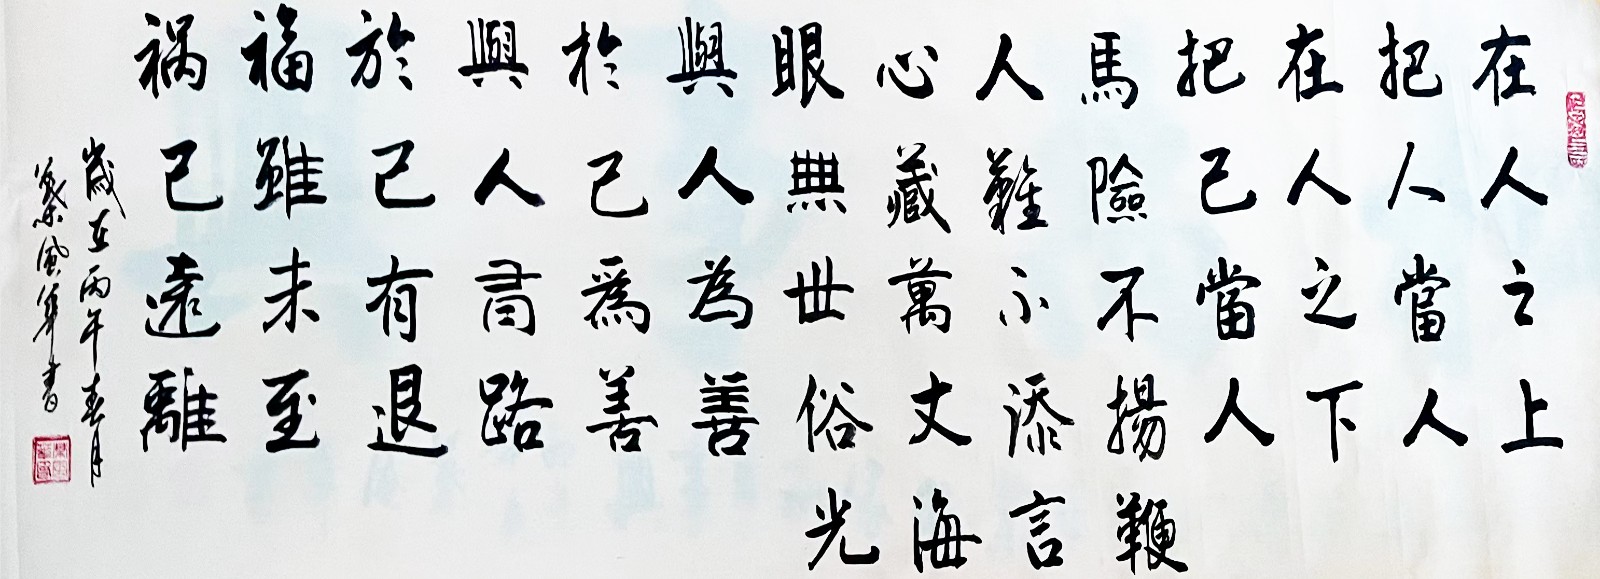 在人之上
把人當人
在人之下
把己當人
馬險不揚鞭
人難不添言
心藏萬丈海
眼無世俗光
與人為善
於己爲善
與人路
於己有退
福雖未至
祸已遠離
歲在丙午春月
風華書